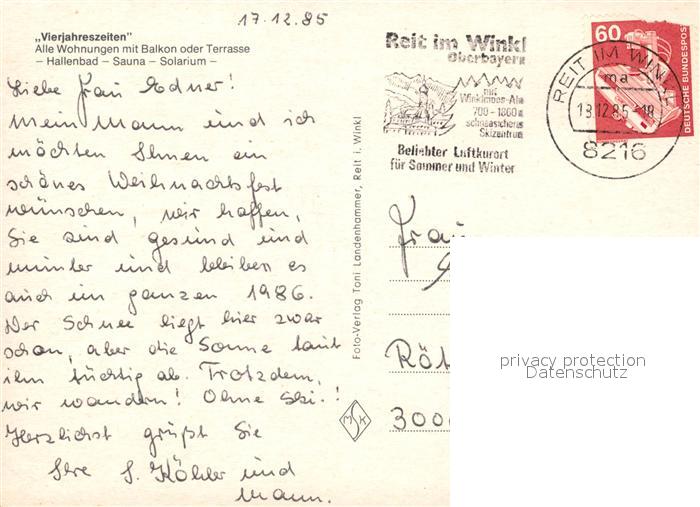 17.12.85
„Vierjahreszeiten"
Alle Wohnungen mit Balkon oder Terrasse
– Hallenbad – Sauna – Solarium –
Liebe Frau Edner!
Mein Mann und ich
möchten Ihnen ein
schönes Weihnachtsfest
wünschen, wir hoffen,
Sie sind gesund und
munter und bleiben es
auch im ganzen 1986.
Der Schnee liegt hier zwar
schon, aber die Sonne taut
ihn tüchtig ab. Trotzdem,
wir wandern! Ohne Ski.!
Herzlichst grüßt Sie
Ihre S. Köhler und
Mann.
Foto-Verlag Toni Landenhammer, Reit i. Winkl
MSK
Reit im Winkl
Oberbayern
mit
Winklmoos-Alm
700-1800m
schneesicheres
Skizentrum
Beliebter Luftkurort
für Sommer und Winter
REIT IM WINKL
ma
18.12.85-18
8216
60
DEUTSCHE BUNDESPOST
Frau
Röt
300
privacy protection
Datenschutz